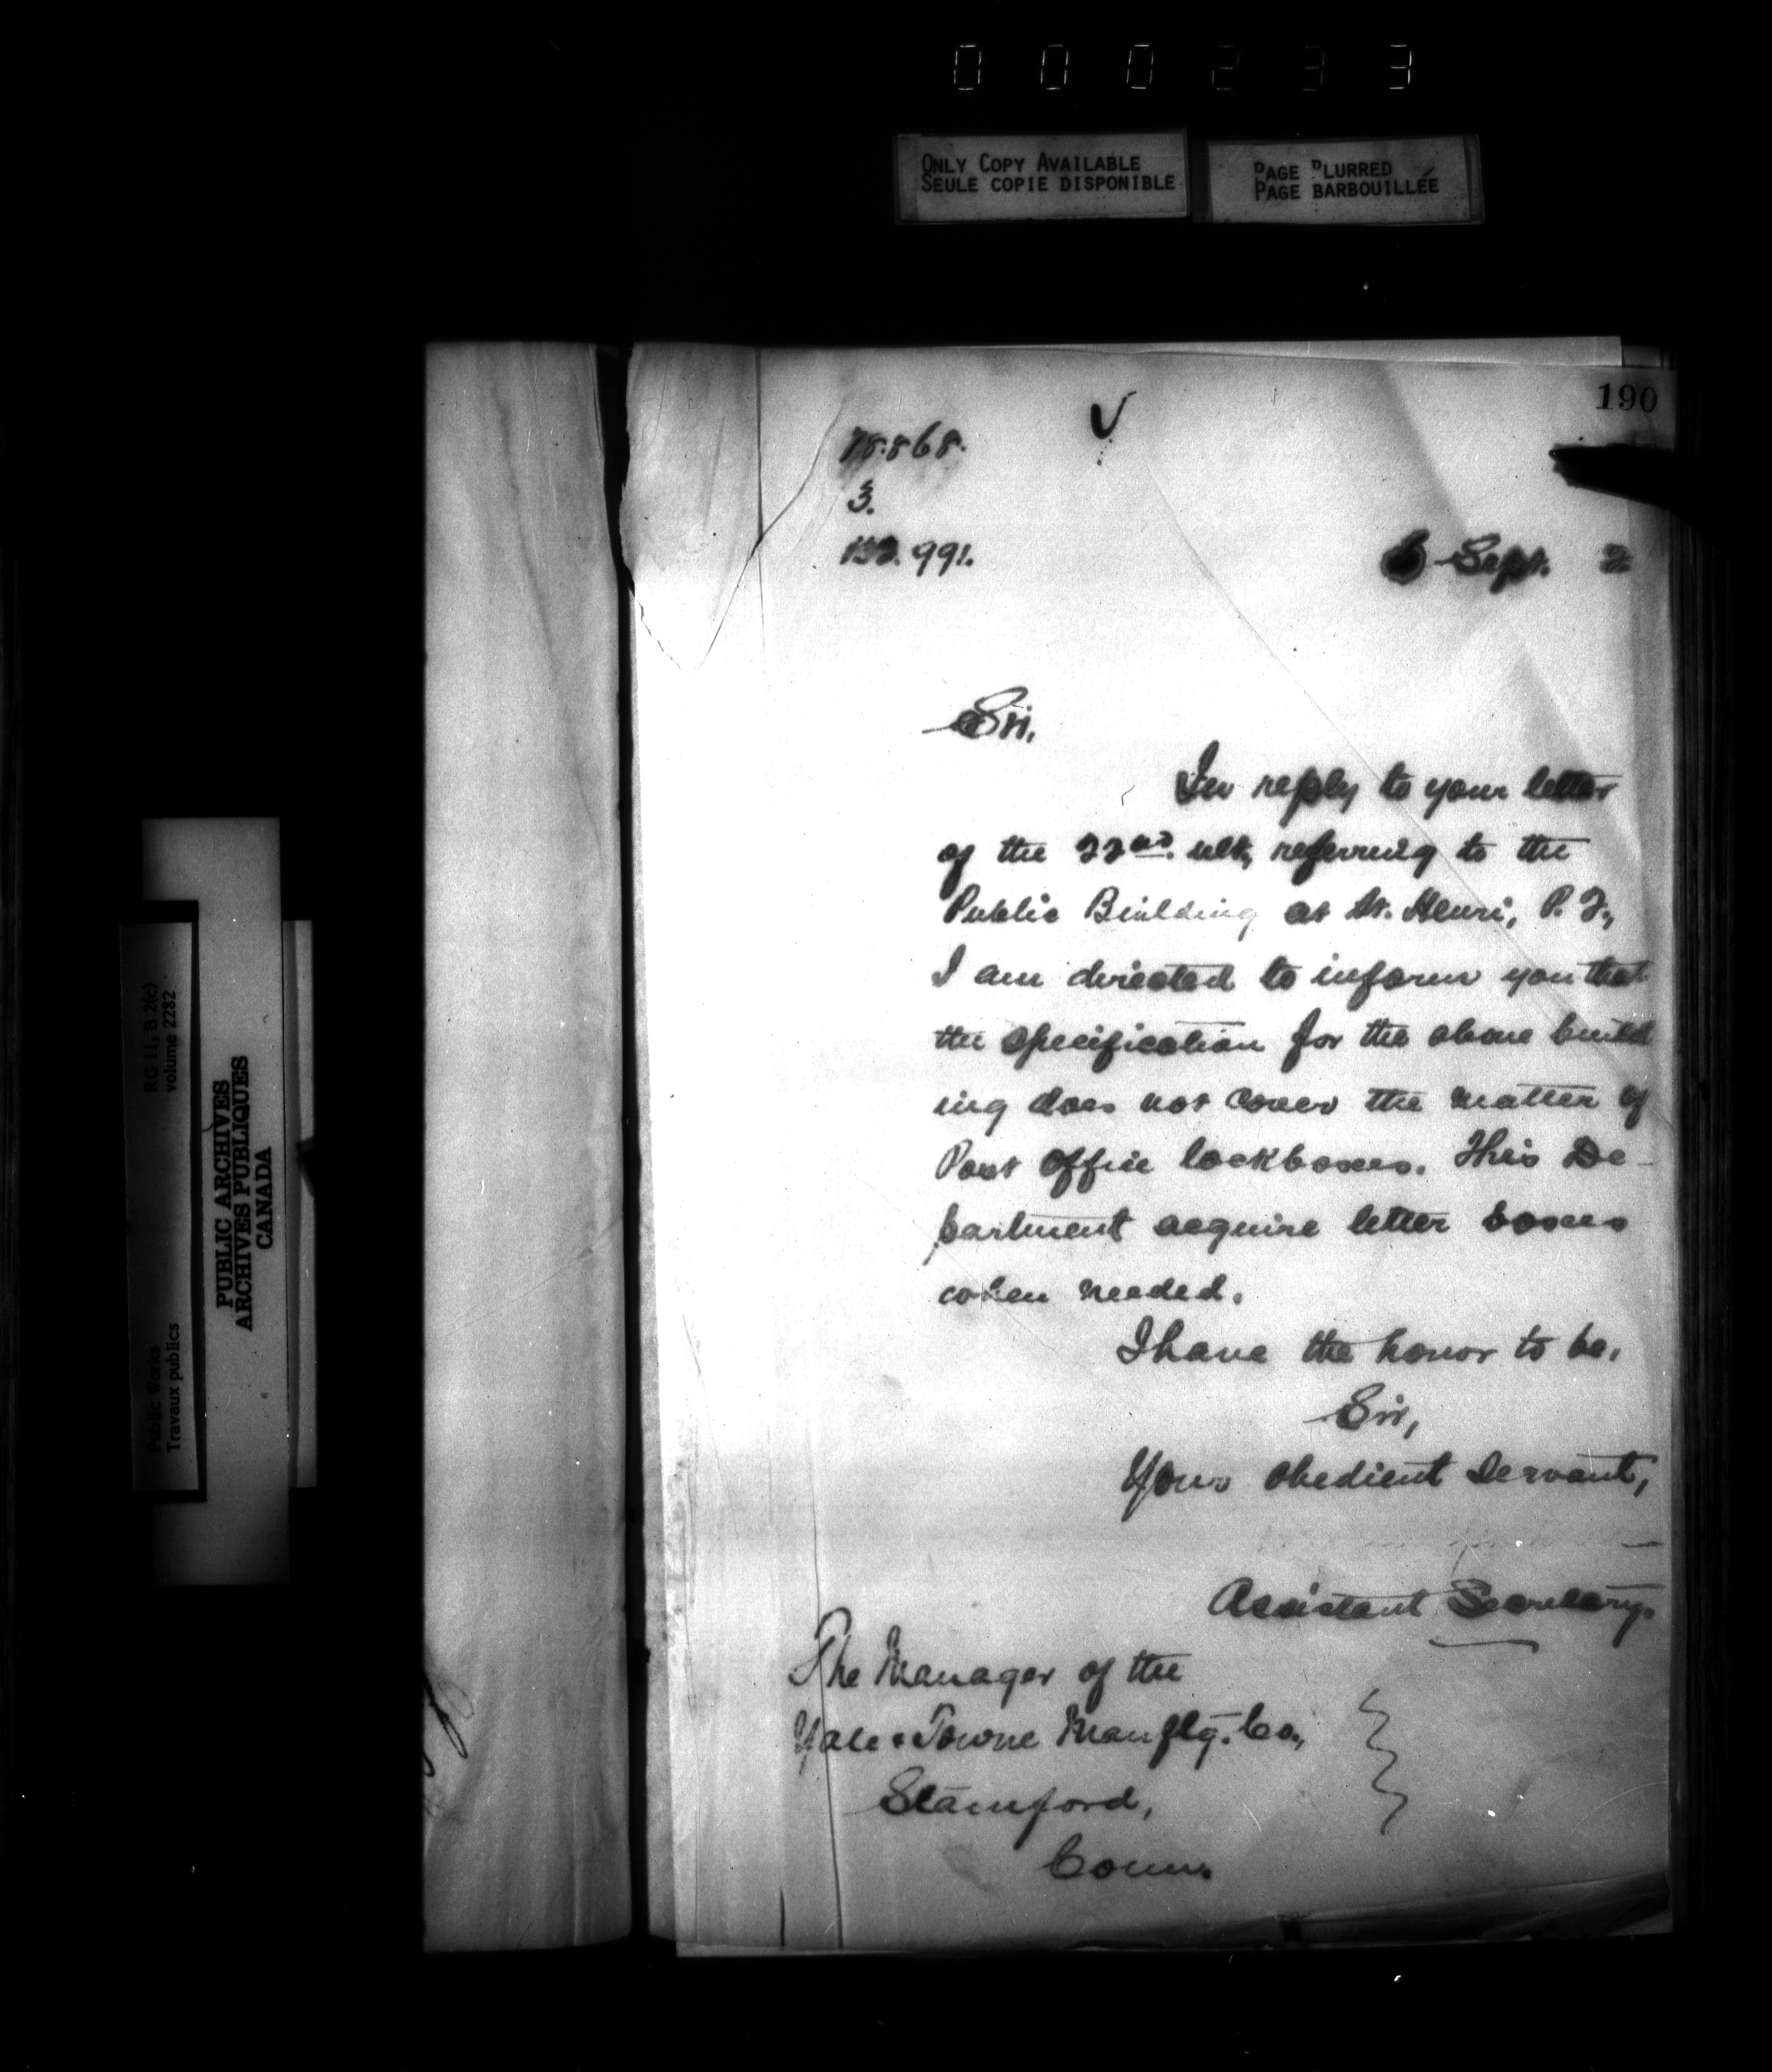 000233
ONLY COPY AVAILABLE
SEULE COPIE DISPONIBLE
PAGE BLURRED
PAGE BARBOUILLÉE
190
78.868.
3.
991.
Sept. 2
Sir,
In reply to your letter
of the 22nd. ult, referring to the
Public Building at St. Henri, P. Q.,
I am directed to inform you that
the specification for the above build
ing does not cover the matter of
Post Office lockboxes. This De-
partment acquire letter boxes
when needed.
I have the honor to be,
Sir,
Your obedient Servant,
Assistant Secretary.
The Manager of the
Yale & Towne Manftg. Co.,
Stamford,
Conn.
RG 11, B 2(c)
volume 2282
Public Works
Travaux publics
PUBLIC ARCHIVES
ARCHIVES PUBLIQUES
CANADA